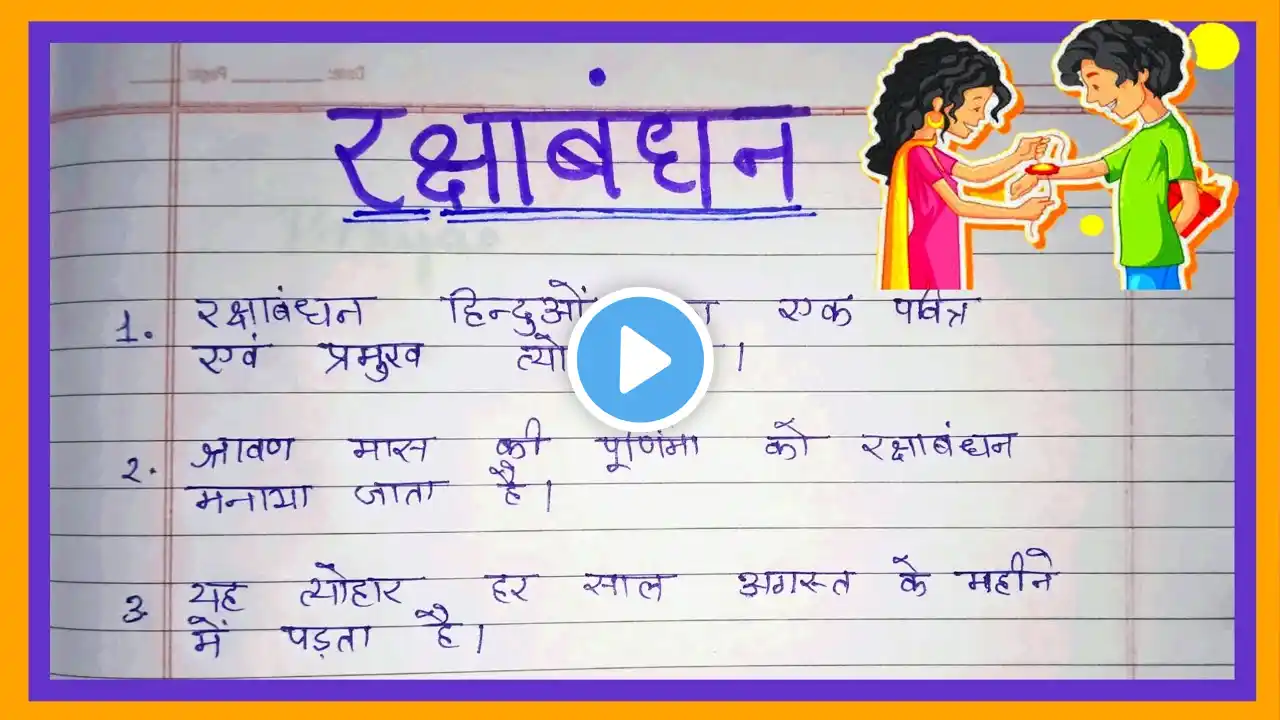 रक्षाबंधन
1. रक्षाबंधन हिन्दुओं एक पवित्र
एवं प्रमुख ।
2. श्रावण मास की पूर्णिमा को रक्षाबंधन
मनाया जाता है।
3. यह त्यौहार हर साल अगस्त के महीने
में पड़ता है।